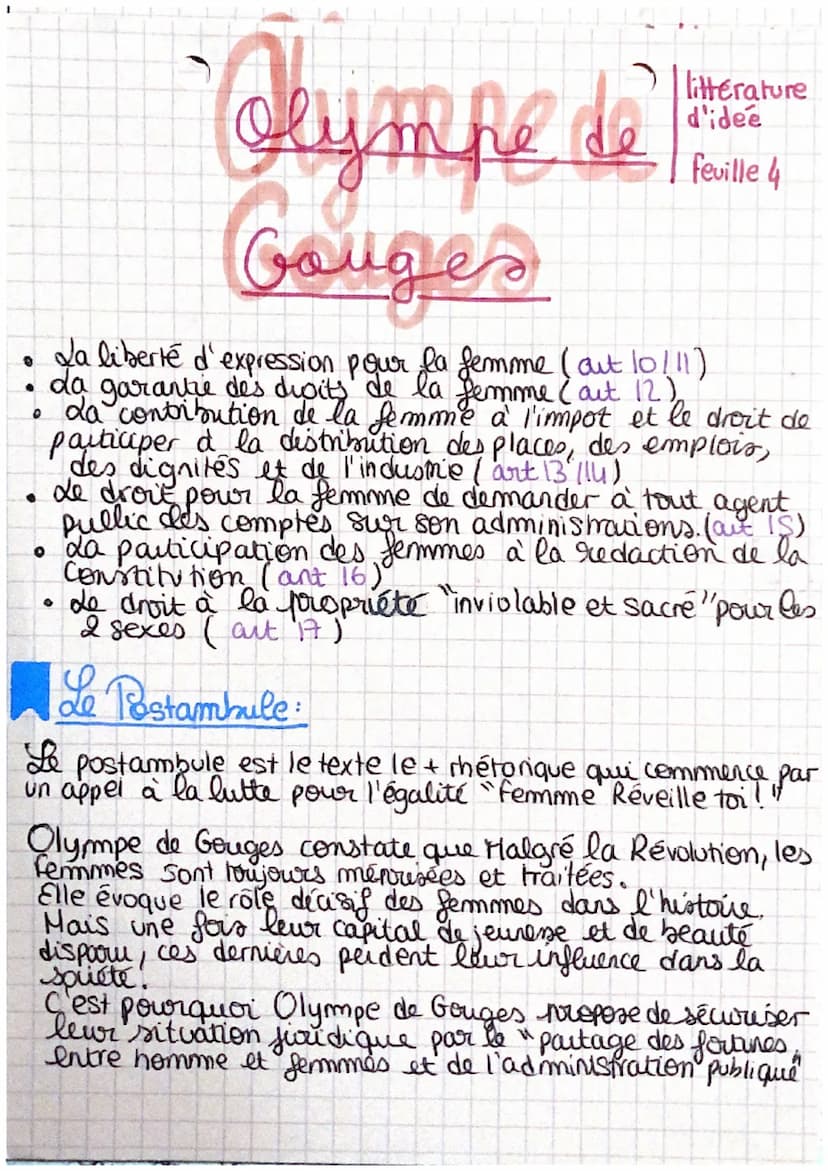 Olympe de
Gouges
littérature
d'idée
feuille 4
• La liberté d'expression pour la femme (art 10/11)
• La garantie des droits de la femme (art 12)
• La contribution de la femme à l'impot et le droit de
participer à la distribution des places, des emplois,
des dignités et de l'industrie (art 13/14)
• Le droit pour la femme de demander à tout agent
public des comptes sur son administrations. (art 15)
• La participation des femmes à la redaction de la
Constitution (art 16)
• Le droit à la propriété "inviolable et sacré" pour les
2 sexes (art 17)
Le Postambule:
Le postambule est le texte le + rhétorique qui commence par
un appel à la lutte pour l'égalité "femme Réveille toi!"
Olympe de Gouges constate que Malgré la Révolution, les
femmes sont toujours méprisées et traitées.
Elle évoque le rôle décisif des femmes dans l'histoire.
Mais une fois leur capital de jeunesse et de beauté
disparu, ces dernières perdent leur influence dans la
société.
C'est pourquoi Olympe de Gouges propose de sécuriser
leur situation juridique par le "partage des fortunes
entre homme et femmes et de l'administration publique"